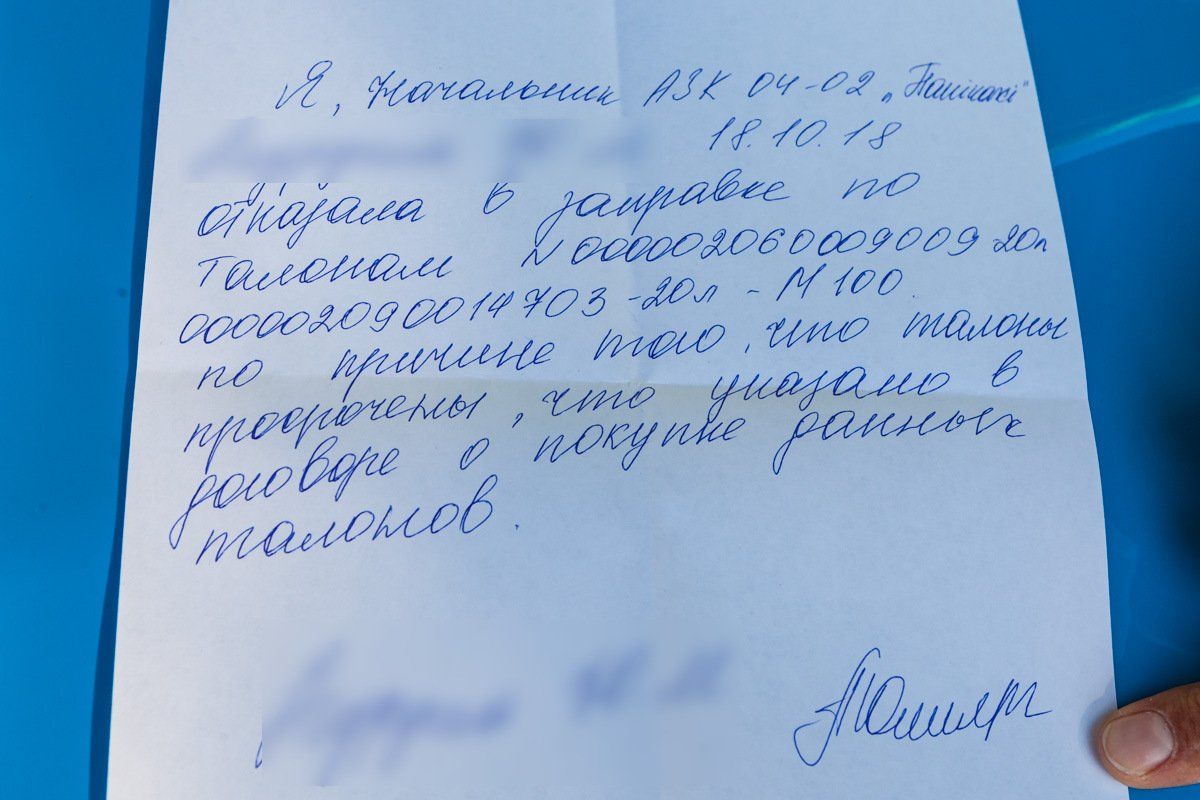 Я, Начальник АЗК 04-02 „
18.10.18
отказала в заправке по
талонам N000002060009009 20л
000002090014703-20л - М100.
по причине того, что талоны
просрочены, что указано в
договоре о покупке данных
талонов.